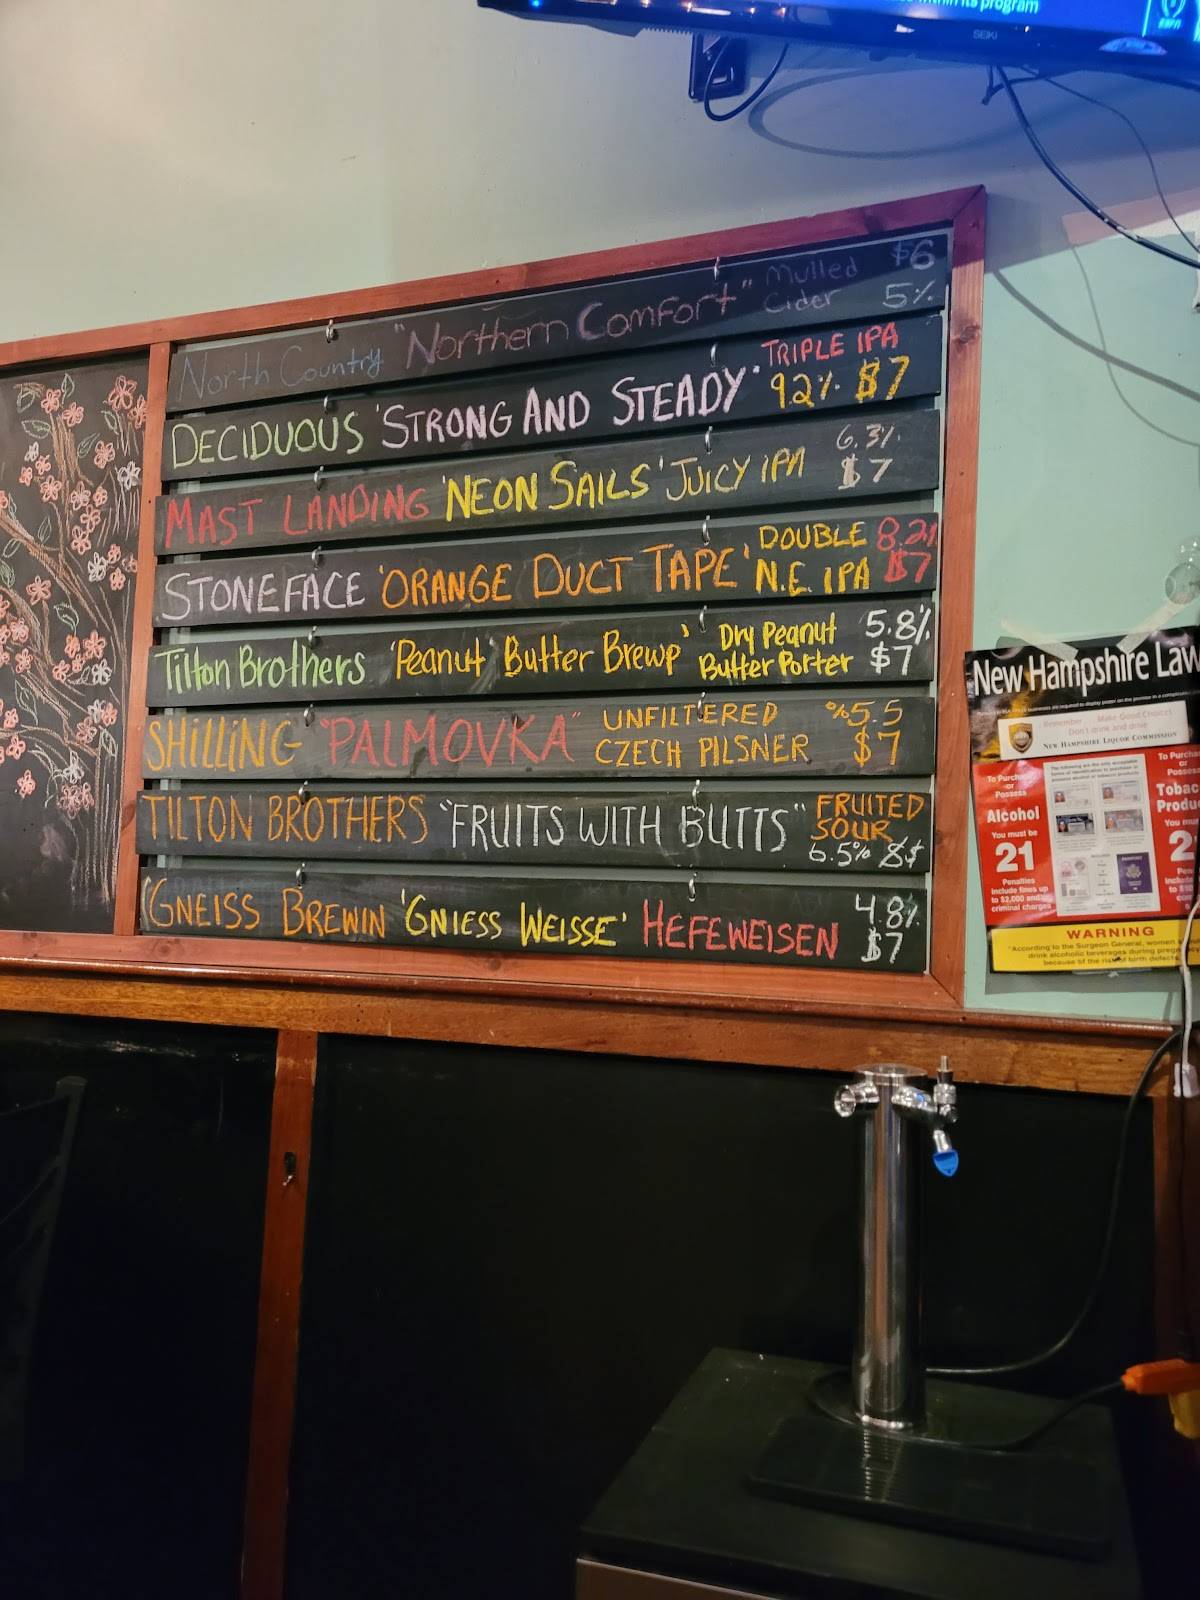 within its program
SEIKI
North Country "Northern Comfort" Mulled Cider $6 5%
DECIDUOUS 'STRONG AND STEADY' TRIPLE IPA 9.2% $7
MAST LANDING 'NEON SAILS' JUICY IPA 6.3% $7
STONEFACE 'ORANGE DUCT TAPE' DOUBLE N.E. IPA 8.2% $7
Tilton Brothers 'Peanut Butter Brewp' Dry Peanut Butter Porter 5.8% $7
SHILLING "PALMOVKA" UNFILTERED CZECH PILSNER %5.5 $7
TILTON BROTHERS "FRUITS WITH BUTTS" FRUITED SOUR 6.5% 8$
GNEISS BREWIN 'GNIESS WEISSE' HEFEWEISEN 4.8% $7
New Hampshire Law
Remember Make Good Choices
Don't drink and drive
NEW HAMPSHIRE LIQUOR COMMISSION
To Purchase
or
Possess
Alcohol
You must be
21
Penalties
include fines up
to $2,000 and
criminal charges
To Purch
or
Posses
Tobac
Produ
You mu
2
WARNING
"According to the Surgeon General, women
drink alcoholic beverages during preg
because of the risk of birth defects